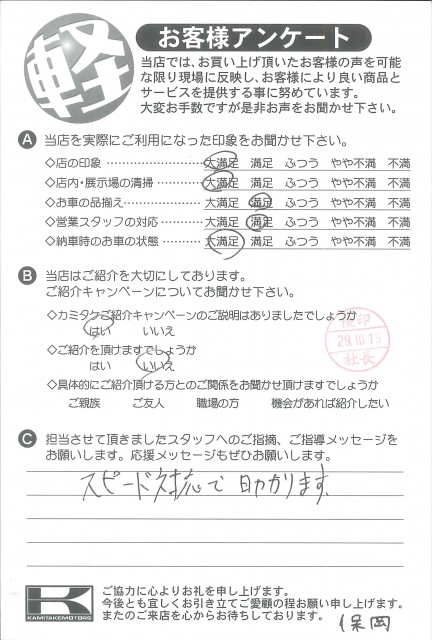 軽
お客様アンケート
当店では、お買い上げ頂いたお客様の声を可能
な限り現場に反映し、お客様により良い商品と
サービスを提供する事に努めています。
大変お手数ですが是非お声をお聞かせ下さい。
A 当店を実際にご利用になった印象をお聞かせ下さい。
◇店の印象 大満足 満足 ふつう やや不満 不満
◇店内・展示場の清掃 大満足 満足 ふつう やや不満 不満
◇お車の品揃え 大満足 満足 ふつう やや不満 不満
◇営業スタッフの対応 大満足 満足 ふつう やや不満 不満
◇納車時のお車の状態 大満足 満足 ふつう やや不満 不満
B 当店はご紹介を大切にしております。
ご紹介キャンペーンについてお聞かせ下さい。
◇カミタケご紹介キャンペーンのご説明はありましたでしょうか
はい いいえ
検印
29.10.15
社長
◇ご紹介を頂けますでしょうか
はい いいえ
◇具体的にご紹介頂ける方とのご関係をお聞かせ頂けますでしょうか
ご親族 ご友人 職場の方 機会があれば紹介したい
C 担当させて頂きましたスタッフへのご指摘、ご指導メッセージを
お願いします。応援メッセージもぜひお願いします。
スピード対応で助かります。
K
KAMITAKEMOTORS
ご協力に心よりお礼を申し上げます。
今後とも宜しくお引き立てご愛顧の程お願い申し上げます。
またのご来店を心からお待ちしております。
保岡